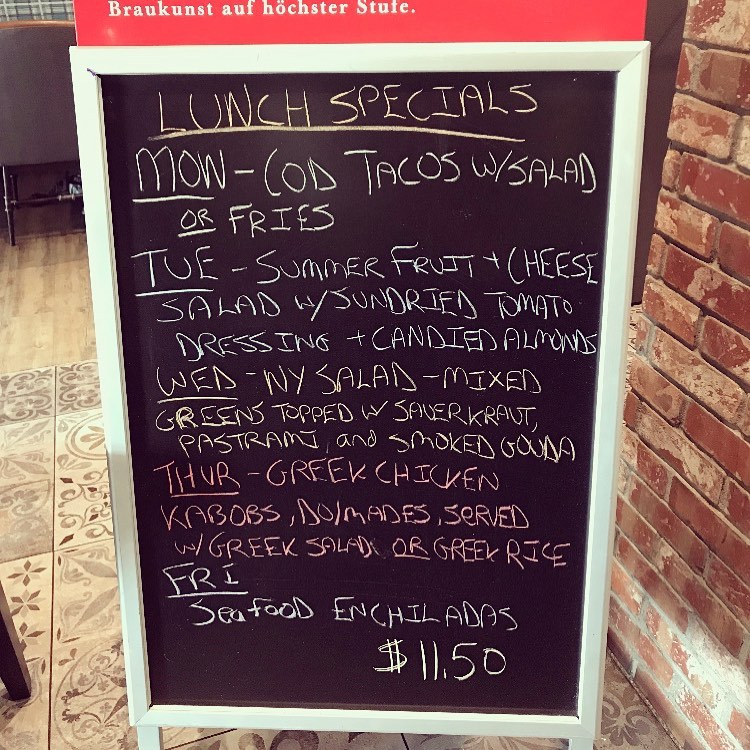 Braukunst auf höchster Stufe.
LUNCH SPECIALS
MON - COD TACOS W/SALAD
OR FRIES
TUE - SUMMER FRUIT + CHEESE
SALAD W/SUNDRIED TOMATO
DRESSING + CANDIED ALMONDS
WED - NY SALAD - MIXED
GREENS TOPPED W SAUERKRAUT,
PASTRAMI, and SMOKED GOUDA
THUR - GREEK CHICKEN
KABOBS, DOLMADES, SERVED
W/GREEK SALAD OR GREEK RICE
FRI
SeaFOOD ENCHILADAS
$11.50